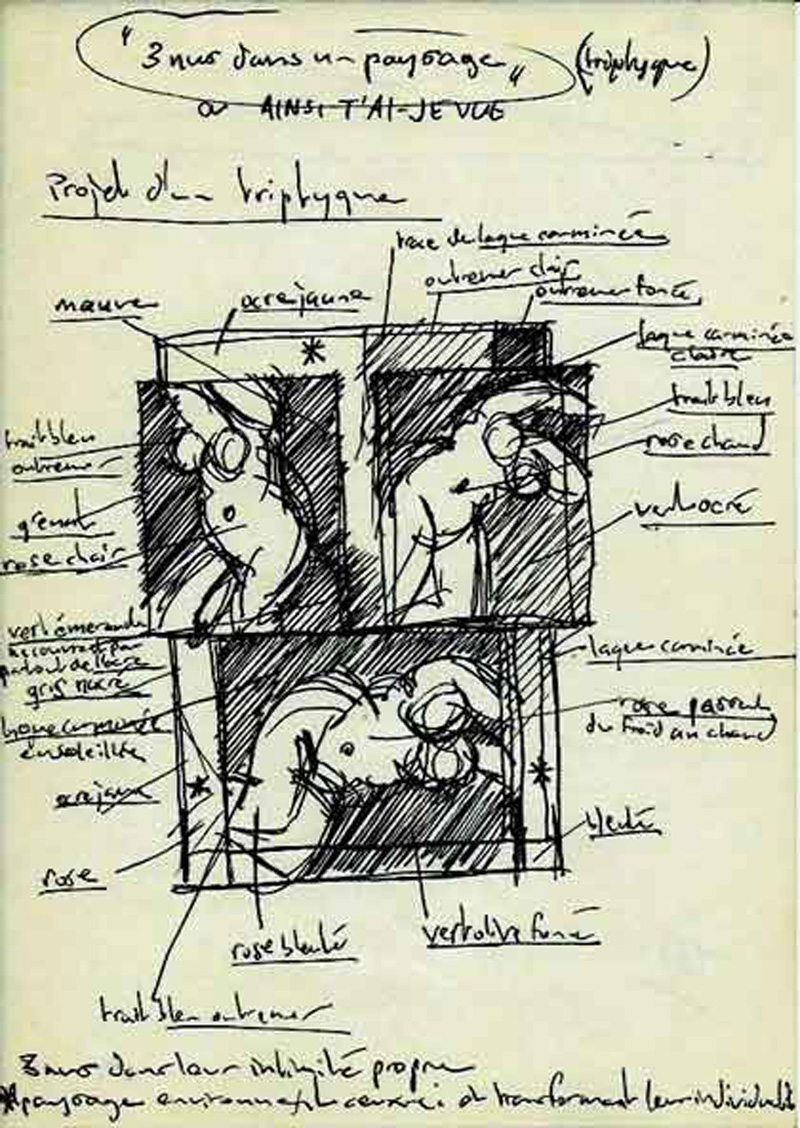 "3 nus dans un paysage" (triptyque)
ou AINSI T'AI-JE VUE
Projet d'un triptyque
trace de laque carminée
outremer clair
outremer foncé
mauve
ocre jaune
laque carminée
claire
trait bleu
outremer
trait bleu
rose chaud
grenat
rose clair
vert ocré
vert émeraude
gris nacré
laque carminée
ensoleillée
rose passant
du froid au chaud
ocre jaune
bleuté
rose
rose bleuté
vert olive foncé
trait bleu outremer
3 nus dans leur intimité propre
* paysage environnant et transformant leur individualité